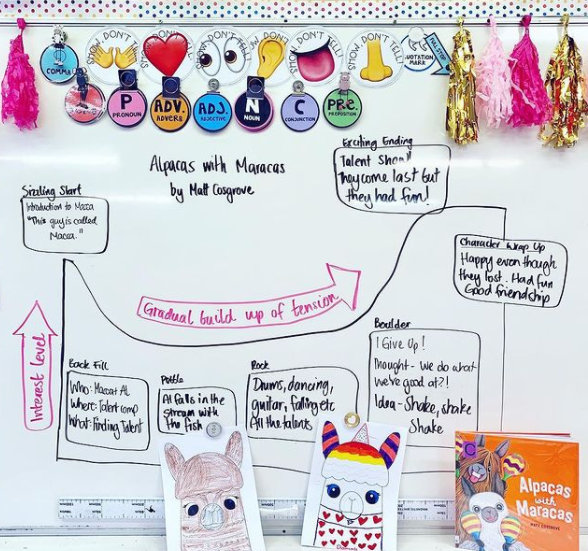 COMMA
SHOW, DON'T TELL!
SHOW, DON'T TELL!
SHOW, DON'T TELL!
SHOW, DON'T TELL!
SHOW, DON'T TELL!
SHOW, DON'T TELL!
MARK
FULL STOP
P
PRONOUN
ADV.
ADVERB
ADJ.
ADJECTIVE
N
NOUN
C
CONJUNCTION
PRE.
PREPOSITION
Alpacas with Maracas
by Matt Cosgrove
Exciting Ending
Talent Show
They come last but
they had fun!
Sizzling Start
Introduction to Macca
"This guy is called
Macca."
Character Wrap Up
Happy even though
they lost. Had fun
Good friendship
Gradual build up of tension
Interest level
Back Fill
Who: Macca + Al
Where: Talent comp
What: Finding Talent
Pebble
Al falls in the
stream with
the fish
Rock
Drums, dancing,
guitar, falling etc
All the talents
Boulder
I Give Up!
Thought - we do what
we've good at?!
Idea - Shake, shake
Shake
Alpacas
with
Maracas
MATT COSGROVE